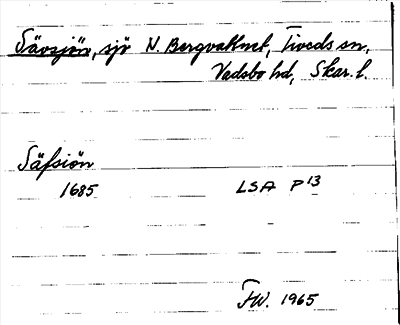 Sävsjön, sjö N. Bergvattnet, Tiveds sn,
Vadsbo hd, Skar. l.
Säfsiön
1685 LSA P13
FW. 1965